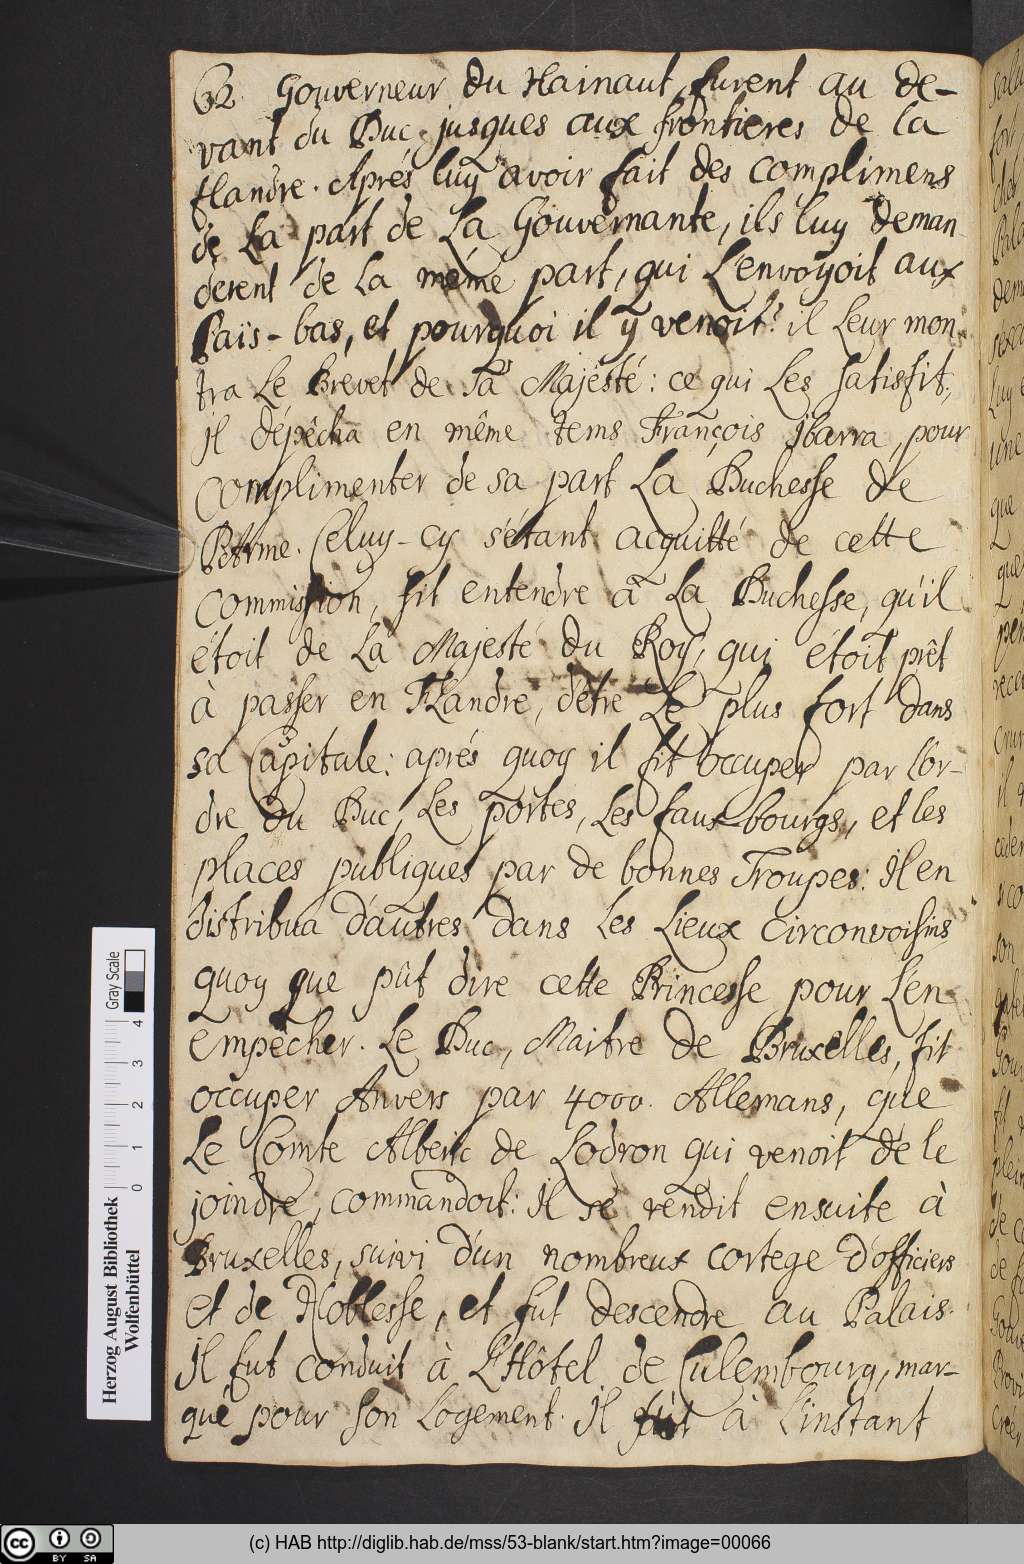 62. Gouverneur du Hainaut, furent au de-
vant du Duc, jusques aux frontieres de la
flandre. Aprés luy avoir fait des complimens
de La part de La Gouvernante, ils luy deman
derent de La même part, qui L'envoyoit aux
Païs-bas, et pourquoi il y venoit? il Leur mon-
tra Le Brevet de Sa Majesté: ce qui Les satisfit;
Il dépêcha en même tems François Ibarra, pour
complimenter de sa part La Duchesse de
Parme. Celuy-cy s'étant acquitté de cette
commission, fit entendre à La Duchesse, qu'il
étoit de La Majesté du Roy, qui étoit prêt
à passer en Flandre, d'être Le plus fort dans
sa Capitale: aprés quoy il fit occuper par l'or-
dre du Duc, Les portes, Les faux-bourgs, et les
places publiques par de bonnes Troupes: Il en
distribua d'autres dans Les Lieux circonvoisins
quoy que pût dire cette Princesse pour L'en
empêcher. Le Duc, Maitre de Bruxelles, fit
occuper Anvers par 4000. Allemans, que
Le Comte Alberic de Lodron qui venoit de le
joindre, commandoit: Il se rendit ensuite à
Bruxelles, suivi d'un nombreux cortege d'officiers
et de Noblesse, et fut descendre au Palais.
Il fut conduit à L'Hôtel de Culembourg, mar-
qué pour son Logement. Il fut à L'instant
Herzog August Bibliothek
Wolfenbüttel
0 1 2 3 4
Gray Scale
cc BY SA
(c) HAB http://diglib.hab.de/mss/53-blank/start.htm?image=00066